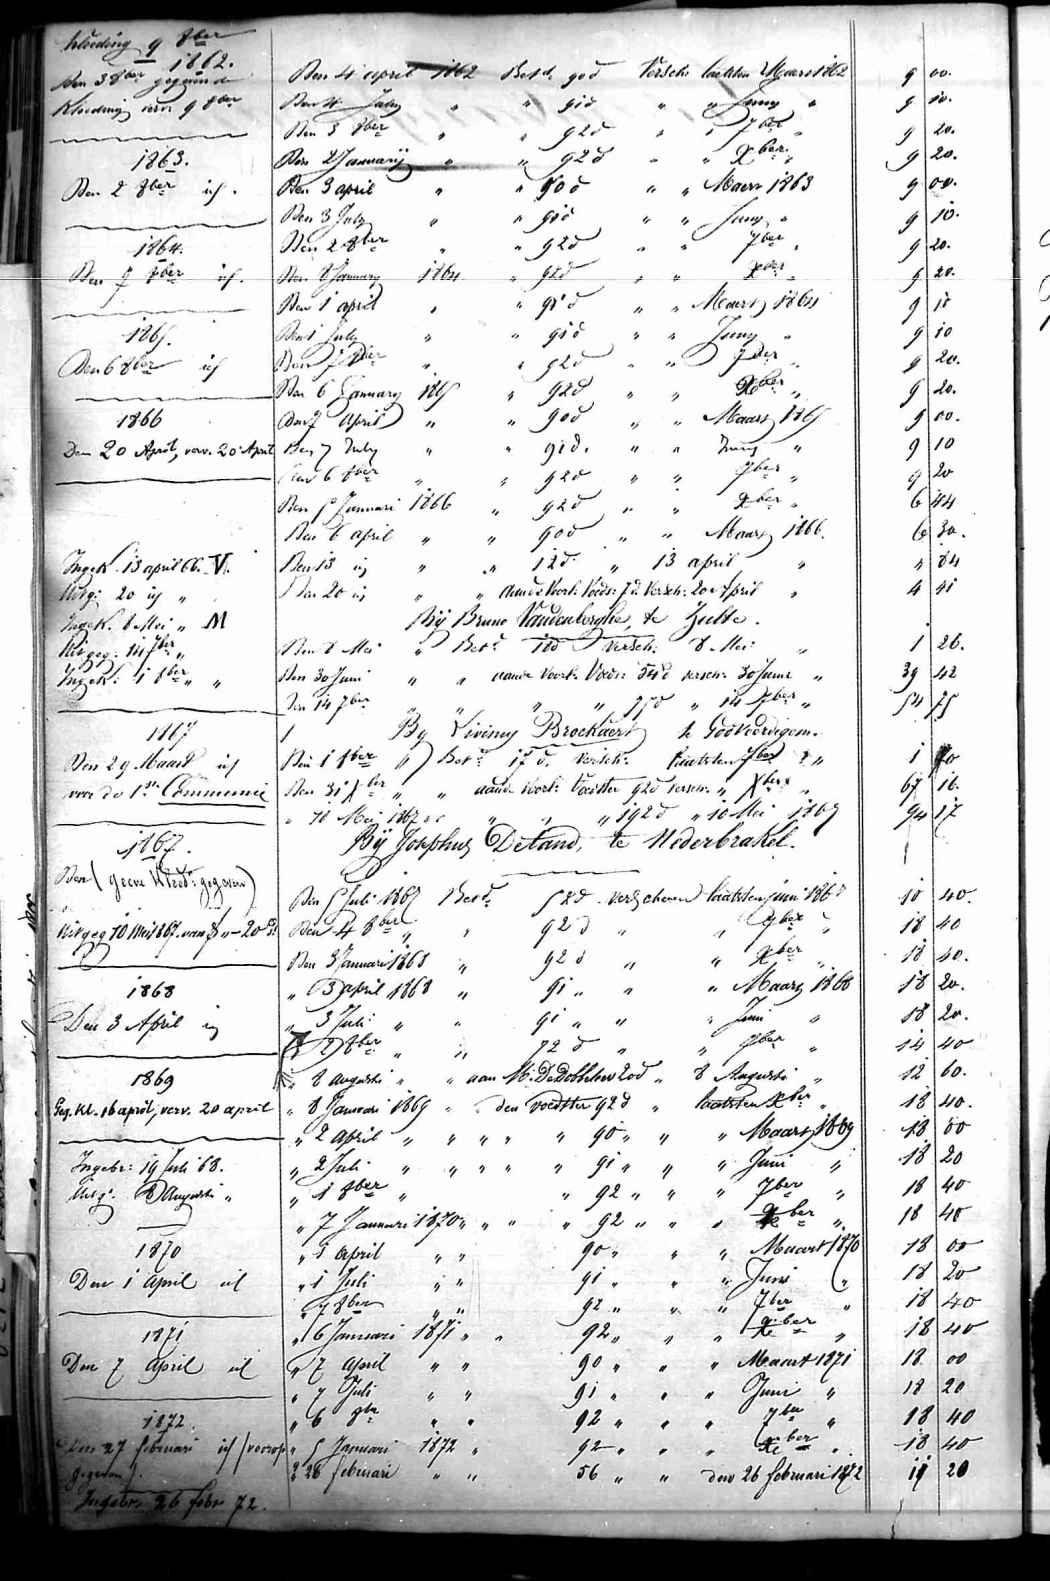 Kleeding 9 8ber
1862.
Den 3 8ber gegeven de
Kleeding verv. 9 8ber
1863.
Den 2 8ber id.
1864.
Den 7 8ber id.
1865.
Den 6 8ber id
1866
Den 20 April, verv. 20 April
Ingek. 13 april 66. V.
Uitg: 20 id "
Ingek. 8 Mei " M
Uitgeg: 14 7ber "
Ingek: 1 8ber " "
1867
Den 29 Maart id
voor de 1ste Communie
1867.
Den (geene Kleed: gegeven)
Uitgeg 10 Mei 1867.
1868
Den 3 April id
1869
Geg. Kl. 16 april, verv. 20 april
Ingebr: 19 Juli 68.
Uitg. 8 Augusti "
1870
Den 1 April id
1871
Den 7 April id
1872
Den 27 februari id (voorop
gegeven).
Ingebr. 26 febr 72.
Den 4 april 1862 Betd. 90d Versch. laatsten Maart 1862 9 00.
Den 4 July " " 91d " " Juny " 9 10.
Den 3 8ber " " 92d " " 7ber " 9 20.
Den 2 January " " 92d " " Xber " 9 20.
Den 3 april " " 90d " " Maart 1863 9 00.
Den 3 July " " 91d " " Juny " 9 10.
Den 2 8ber " " 92d " " 7ber " 9 20.
Den 8 January 1864 " 92d " " Xber " 9 20.
Den 1 april " " 91d " " Maart 1864 9 10
Den 1 July " " 91d " " Juny " 9 10
Den 7 8ber " " 92d " " 7ber " 9 20.
Den 6 January 1865 " 92d " " Xber " 9 20.
Den 7 April " " 90d " " Maart 1865 9 00.
Den 7 July " " 91d. " " Juny " 9 10
Den 6 8ber " " 92d " " 7ber " 9 20
Den 5 Januari 1866 " 92d " " Xber " 6 44
Den 6 april " " 90d " " Maart 1866. 6 30.
Den 13 id " " 12d. " 13 april " " 84
Den 20 id " " aan de Voork: Voeds: 7d. Versch: 20 April " 4 41
Bij Bruno Vandenberghe, te Zulte.
Den 8 Mei " Betd 18d Versch: 8 Mei " 1 26.
Den 30 Juni " " aan de Voork: Voeds: 54d versch: 30 Juni " 39 42
Den 14 7ber " " " " 75d " 14 7ber " 54 75
By Livinus Brockaert te Godveerdegem.
Den 1 8ber " Betd 17d. Versch: laatsten 7ber " 1 70
Den 31 Xber " " aan de Voork: Voedster 92d versch: " Xber " 67 16.
" 10 Mei 1867 " " " 129d " 10 Mei 1867 94 17
Bij Josephus Deland, te Nederbrakel.
Den 5 Juli 1867 Betd. 52d verschenen laatsten juni 1867 10 40.
Den 4 8ber " 92d " " 7ber " 18 40
Den 3 Januari 1868 " 92d " " Xber " 18 40.
" 3 april 1868 " 91 " " " Maart 1868 18 20.
" 3 Juli " " 91 " " " Juni " 18 20.
" 2 8ber " " 72d " " 7ber " 14 40
" 8 Augusti " " aan M: De 20d " 8 Augusti " 12 60.
" 8 Januari 1869 " den voedster 92d " laatsten Xber " 18 40.
" 2 april " " " " " 90 " " " Maart 1869 18 00
" 2 Juli " " " " " 91 " " " Juni " 18 20
" 1 8ber " " 92 " " " 7ber " 18 40
" 7 Januari 1870 " " " " 92 " " " Xber " 18 40
" 1 april " " 90 " " " Maart 1870 18 00
" 1 Juli " " 91 " " " Juni " 18 20
" 7 8ber " " 92 " " " 7ber " 18 40
" 6 Januari 1871 " " 92 " " " Xber " 18 40
" 7 April " " 90 " " " Maart 1871 18 00
" 7 Juli " " 91 " " " Juni " 18 20
" 6 8br " " 92 " " " 7ber " 18 40
" 5 Januari 1872 " 92 " " " Xber " 18 40
" 26 februari " " 56 " " den 26 februari 1872 11 20